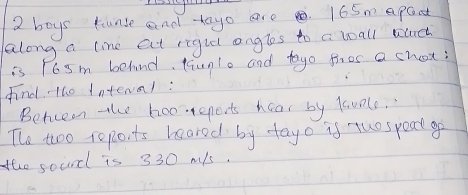 2 boys Kunle and tayo are 165m apart
along a line at right angles to a wall which
is 165m behind. Kunle and tayo fires a shot:
Find the interval:
Between the two reports hear by Kunle.
The two reports heared by tayo if the speed of
the sound is 330 m/s.